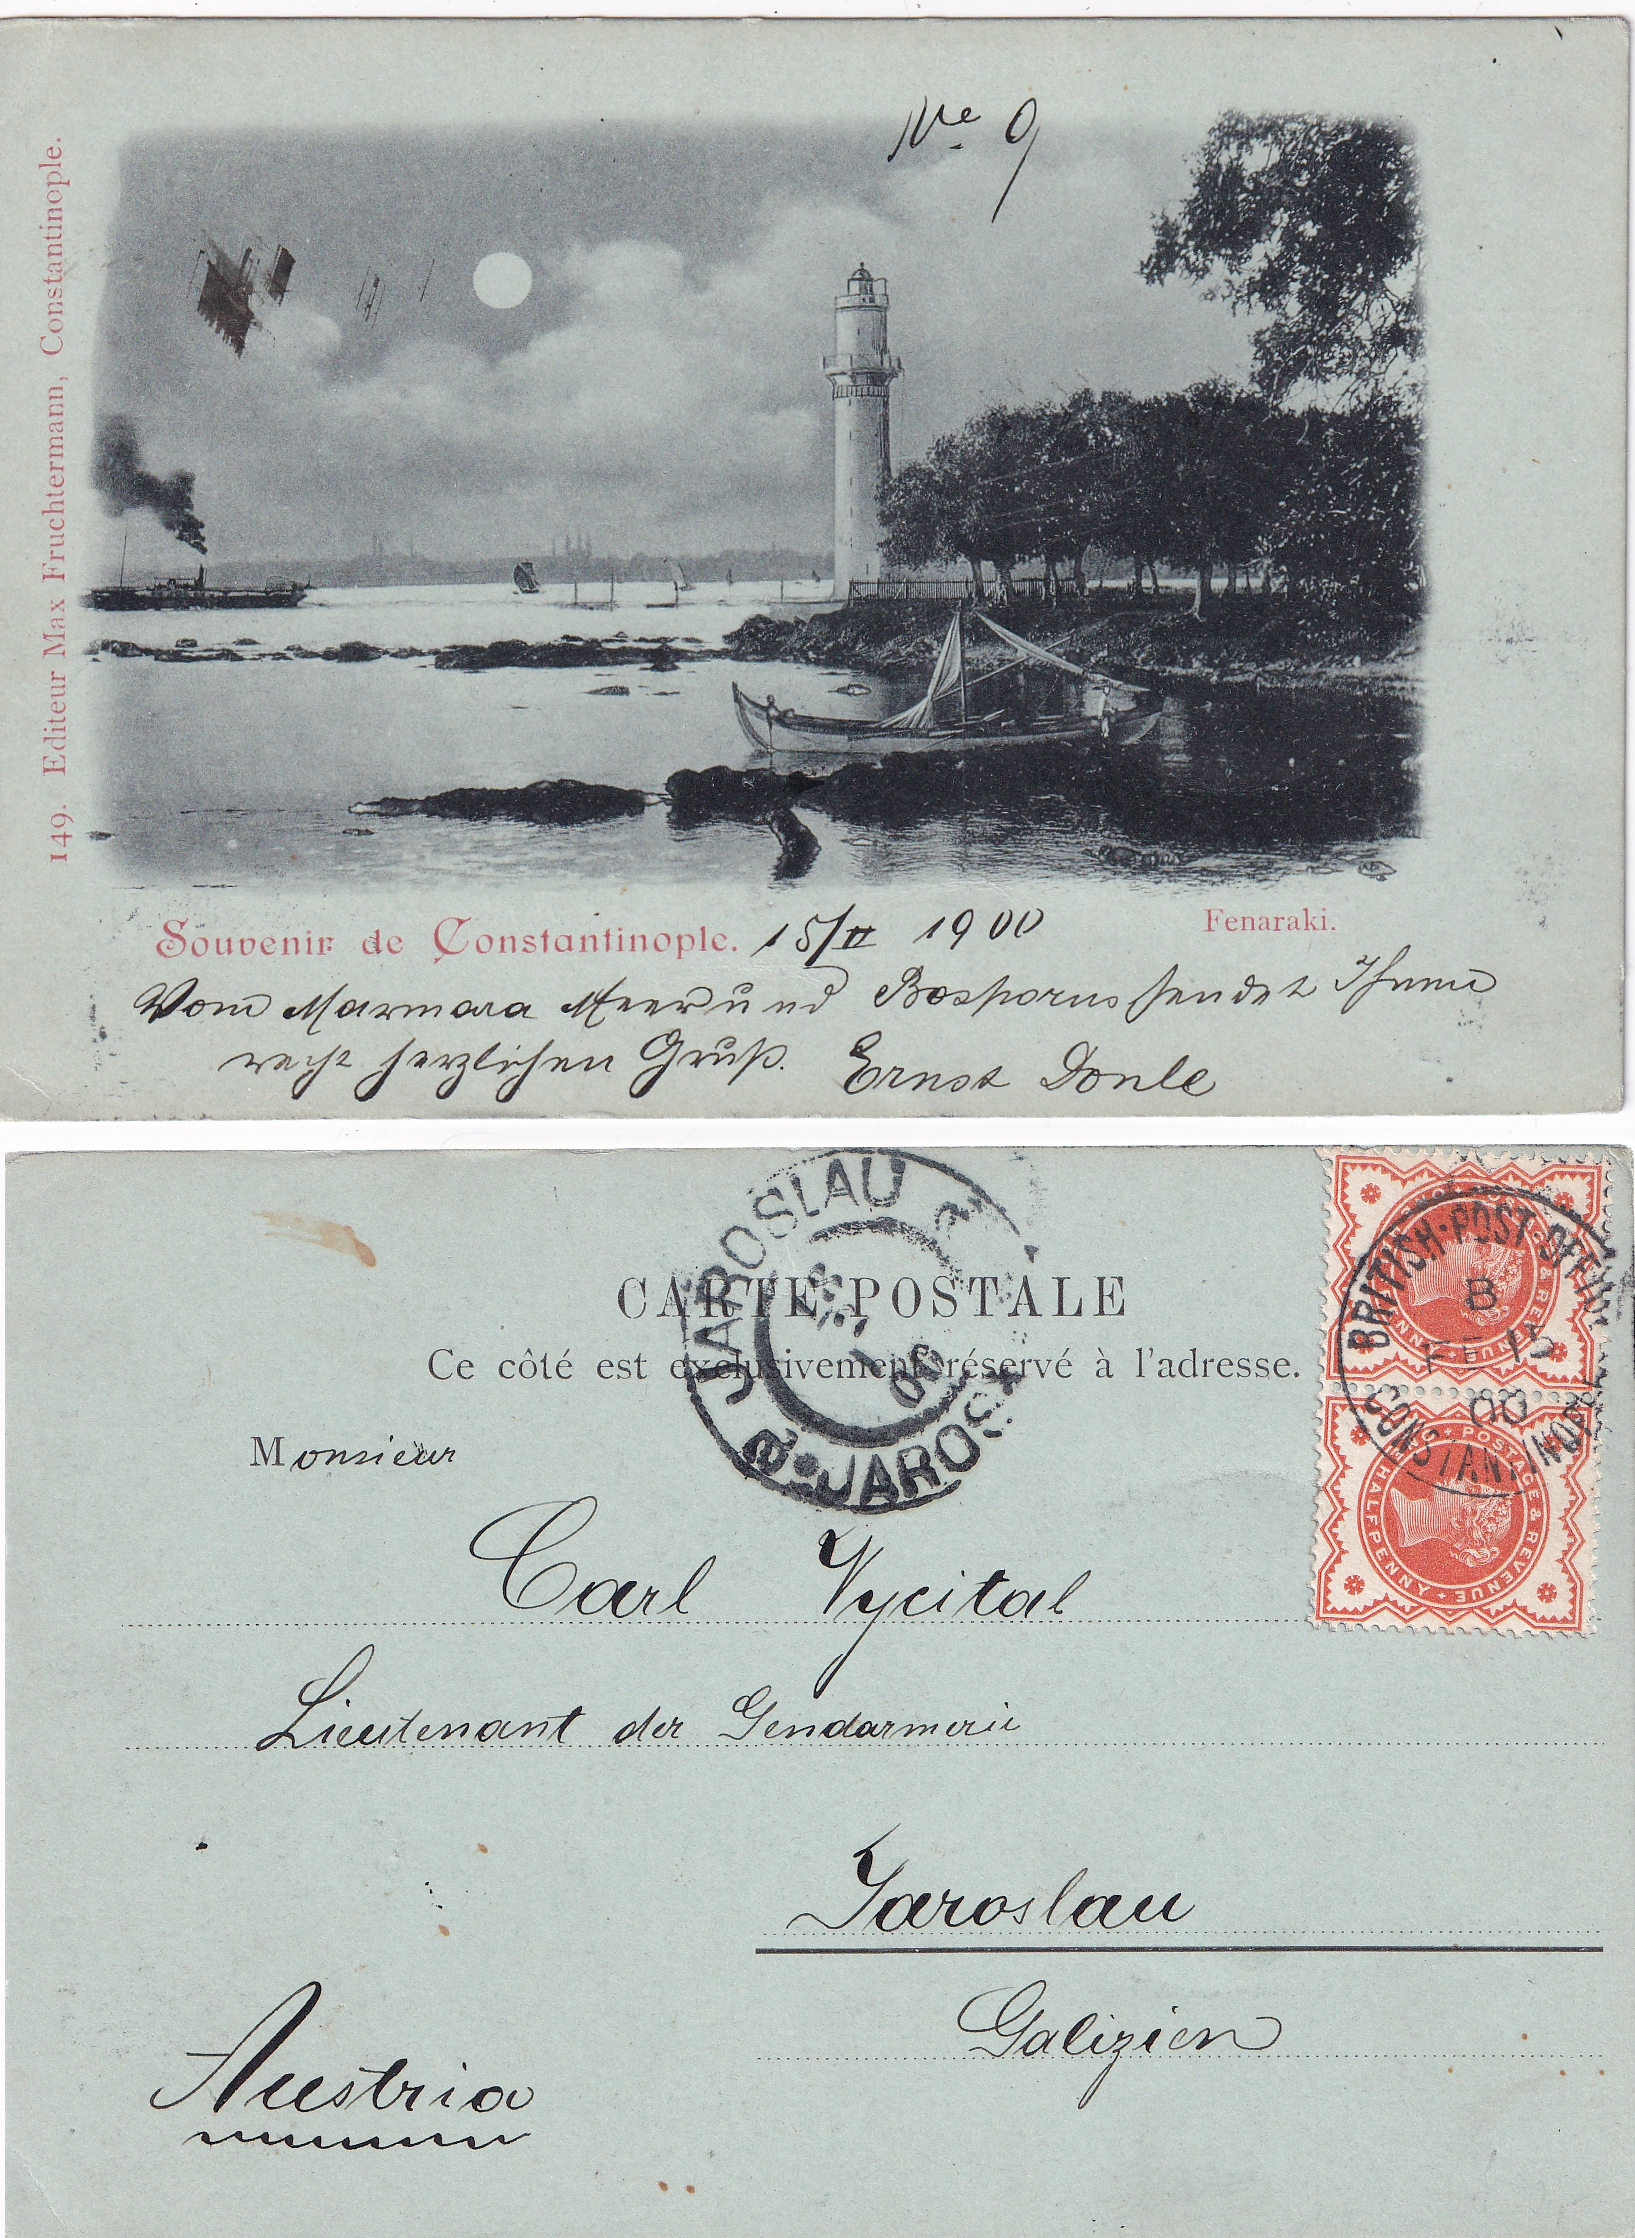 No. 9
149. Editeur Max Fruchtermann, Constantinople.
Souvenir de Constantinople. 15/II 1900
Fenaraki.
Vom Marmara Meer und Bosporus sendet Ihnen
recht herzlichen Gruß. Ernst Donle
JAROSLAU
JAROS
00
CARTE POSTALE
Ce côté est exclusivement réservé à l'adresse.
BRITISH·POST OFFIC
B
FE 15
00
CONSTANTINOPLE
POSTAGE & REVENUE
HALFPENNY
Monsieur
Carl Vycital
Lieutenant der Gendarmerie
Jaroslau
Galizien
Austria